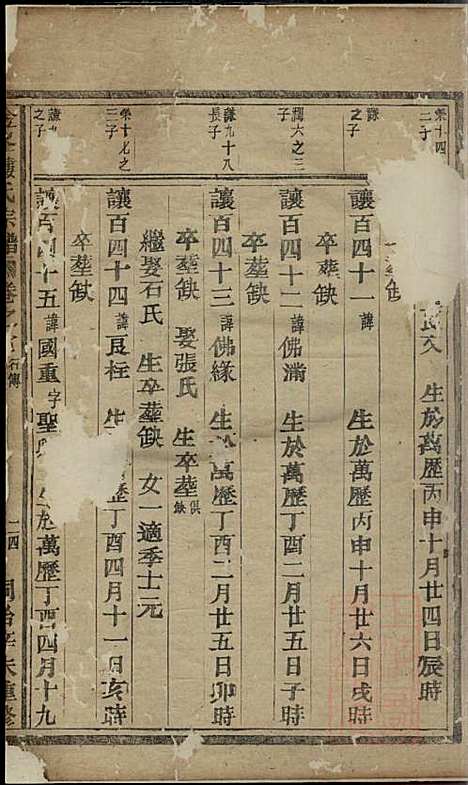 榮十四
二子
良文 生於萬歷丙申十月廿四日辰時
卒塟缺
謙
之子
讓百四十一 諱 生於萬歷丙申十月廿六日戌時
卒塟缺
謙六之三
子
讓百四十二 諱佛滿 生於萬歷丁酉二月廿五日子時
卒塟缺
謙九十八
長子
讓百四十三 諱佛緣 生於萬歷丁酉二月廿五日卯時
卒塟缺 娶張氏 生卒塟俱缺
繼娶石氏 生卒塟缺 女一適季士元
榮十七之
三子
讓百四十四 諱良枉 生 歷丁酉四月十一日亥時
卒塟缺
謙九
之子
讓百四十五 諱國重 字聖 生於萬歷丁酉四月十九
氏宗譜 卷 石傳 二四 同治辛未重修